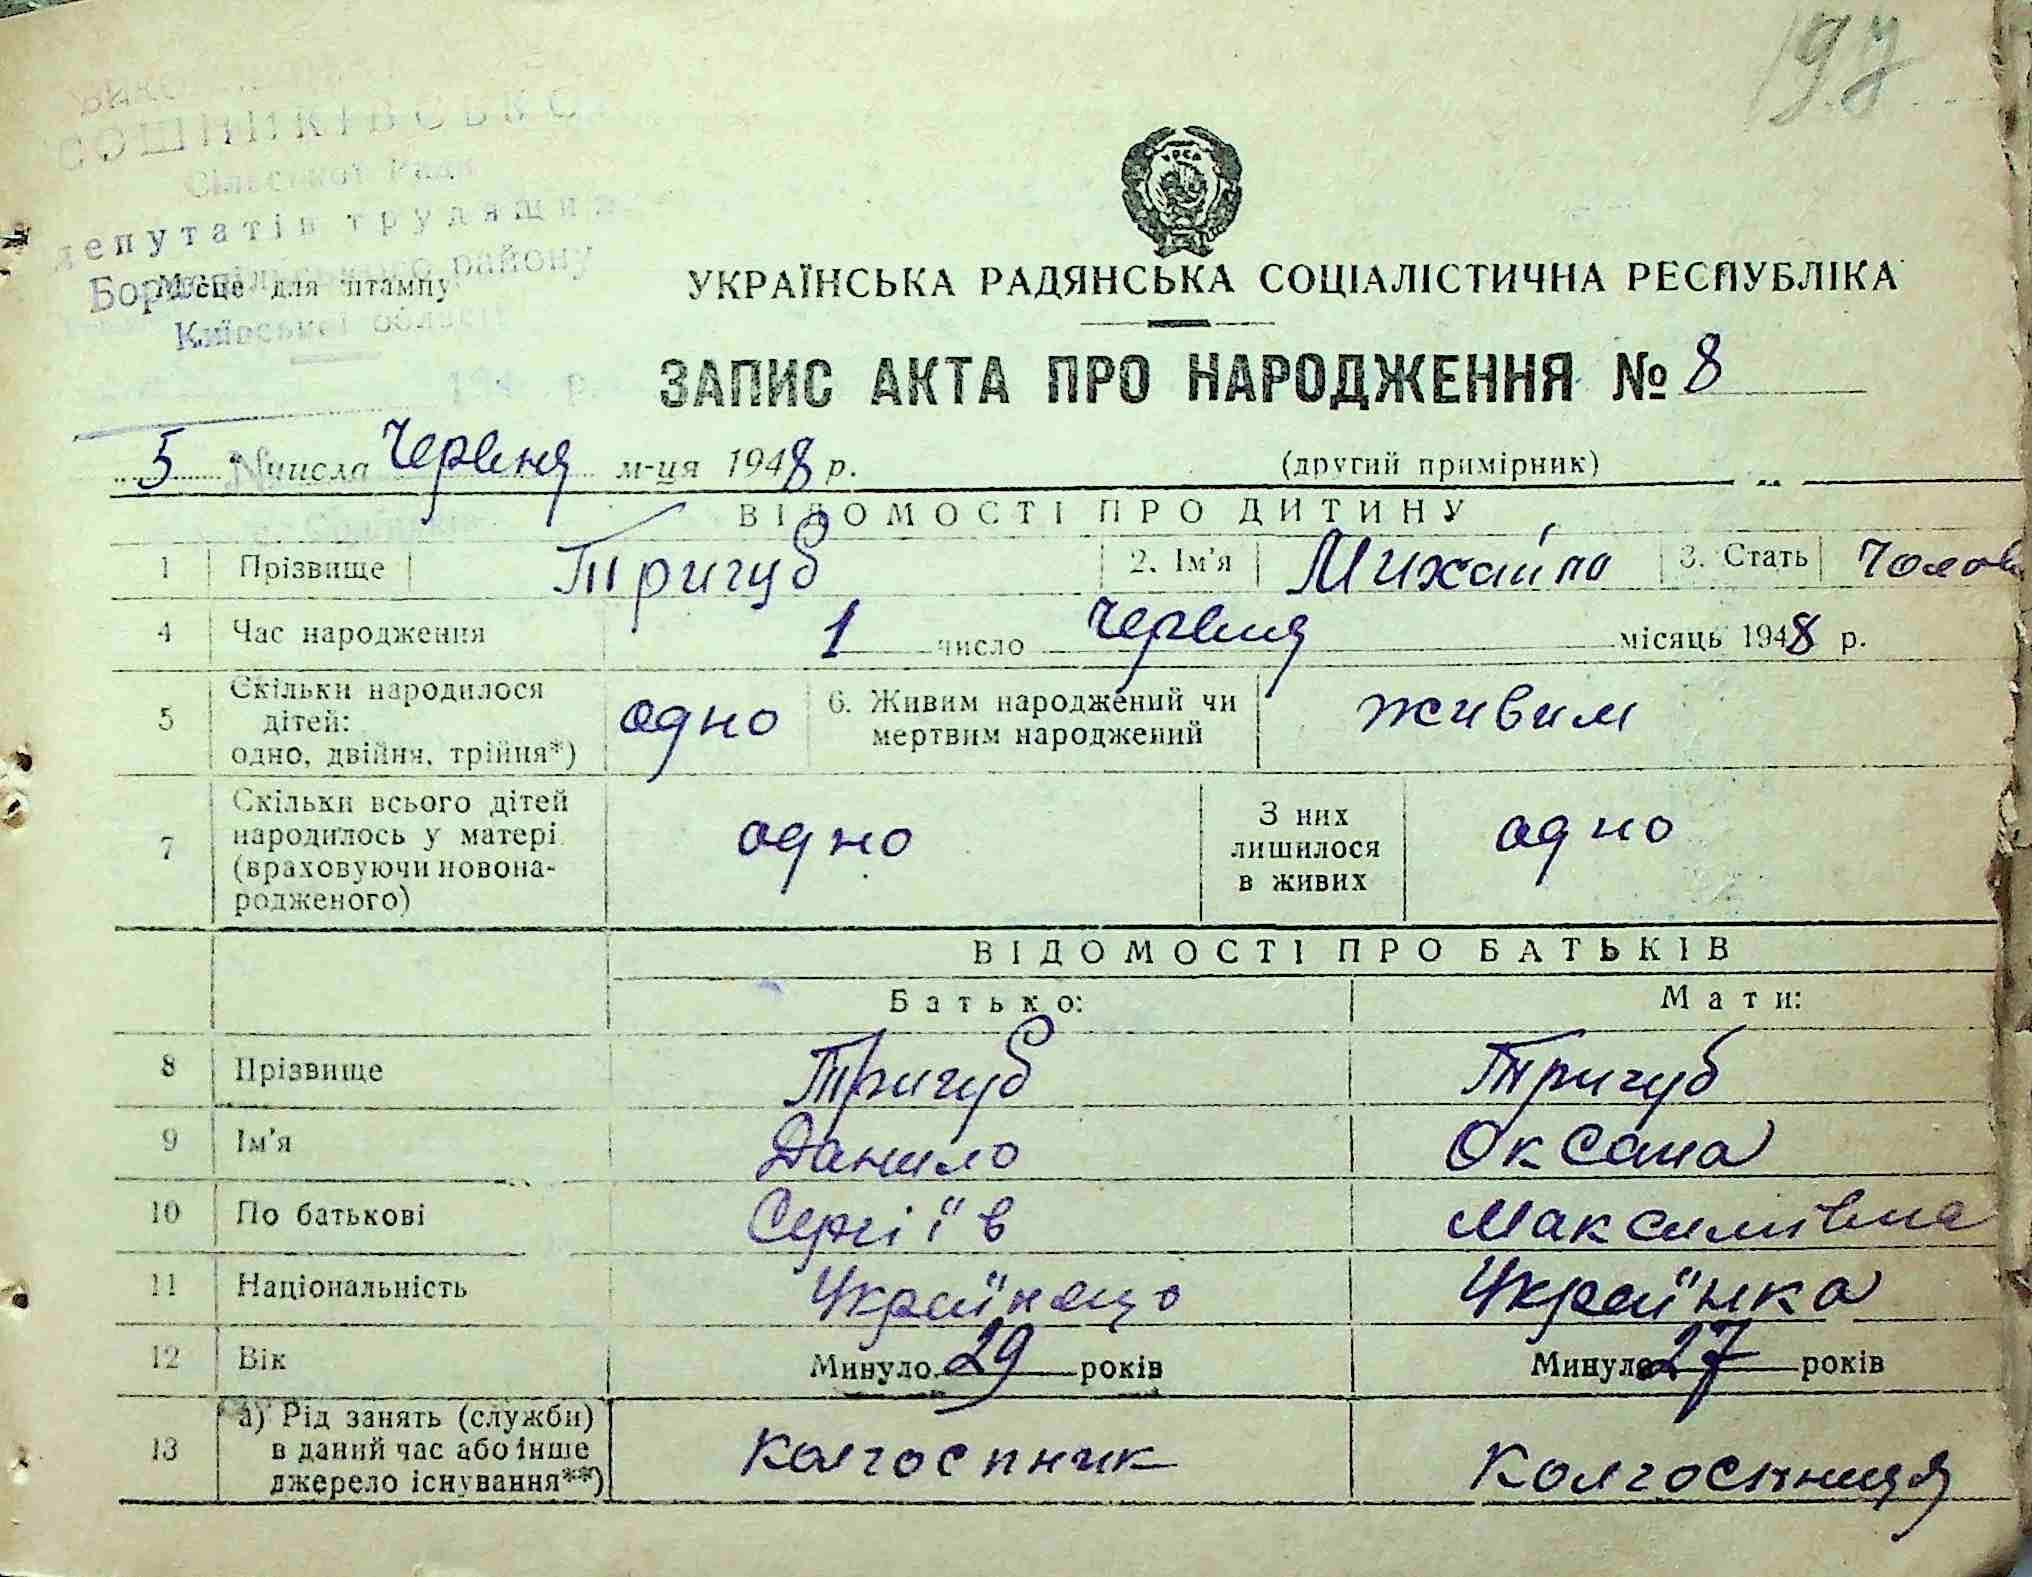 197
СОШНИКІВСЬКО
Сільської Ради
депутатів трудящи
Бориспільського району
Місце для штампу
Київської області
УРСР
УКРАЇНСЬКА РАДЯНСЬКА СОЦІАЛІСТИЧНА РЕСПУБЛІКА
ЗАПИС АКТА ПРО НАРОДЖЕННЯ № 8
5 числа Червня м-ця 1948 р. (другий примірник)
ВІДОМОСТІ ПРО ДИТИНУ
1 Прізвище Тригуб 2. Ім'я Михайло 3. Стать Чолов
4 Час народження 1 число Червня місяць 1948 р.
5 Скільки народилося дітей: одно, двійня, трійня*) одно 6. Живим народжений чи мертвим народжений живим
7 Скільки всього дітей народилось у матері (враховуючи новонародженого) одно З них лишилося в живих одно
ВІДОМОСТІ ПРО БАТЬКІВ
Батько: Мати:
8 Прізвище Тригуб Тригуб
9 Ім'я Данило Оксана
10 По батькові Сергіїв Максимівна
11 Національність Українець Українка
12 Вік Минуло 29 років Минуло 27 років
13 а) Рід занять (служби) в даний час або інше джерело існування**) колгоспник Колгоспниця